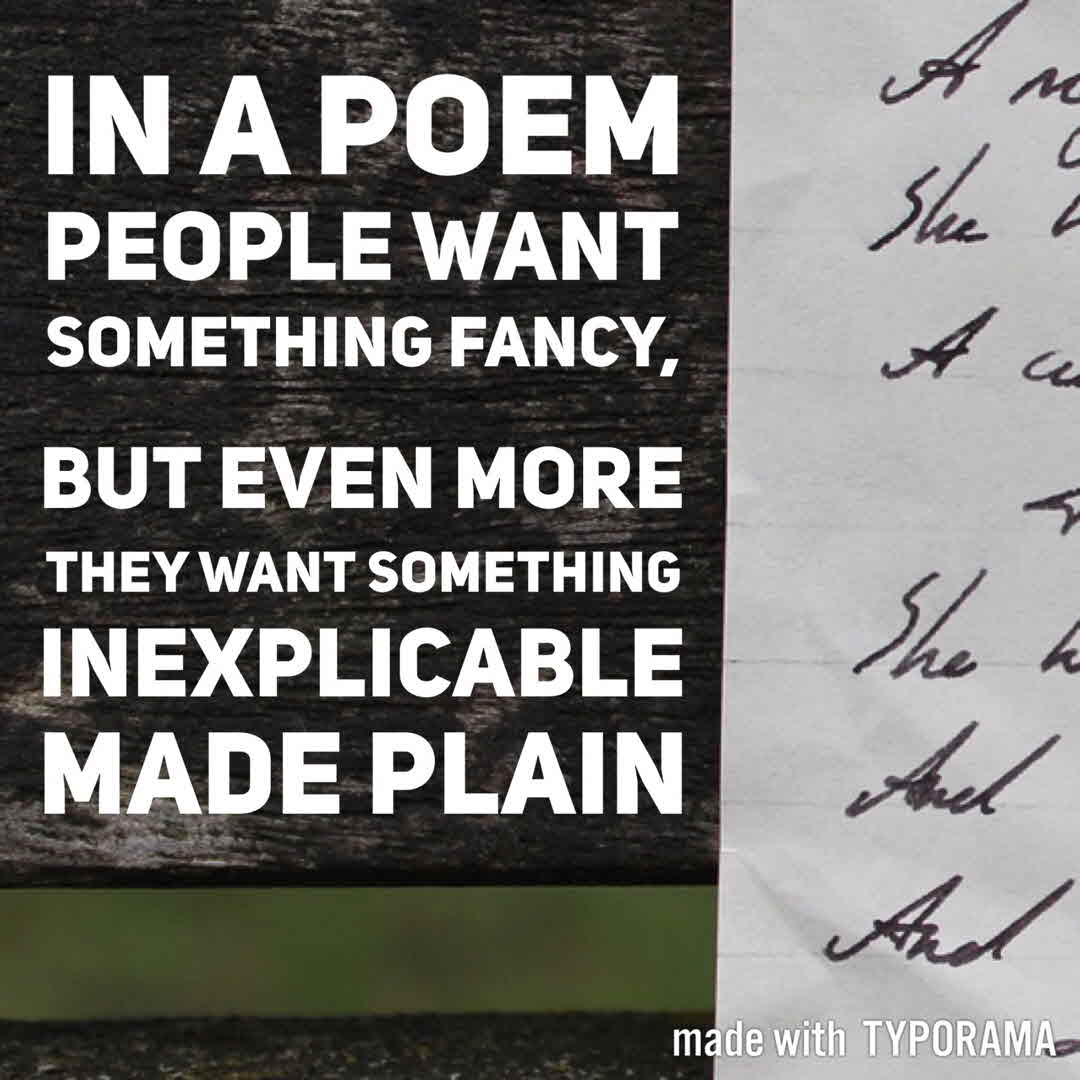 IN A POEM
PEOPLE WANT
SOMETHING FANCY,
BUT EVEN MORE
THEY WANT SOMETHING
INEXPLICABLE
MADE PLAIN
A
She
A
She
And
And
made with TYPORAMA